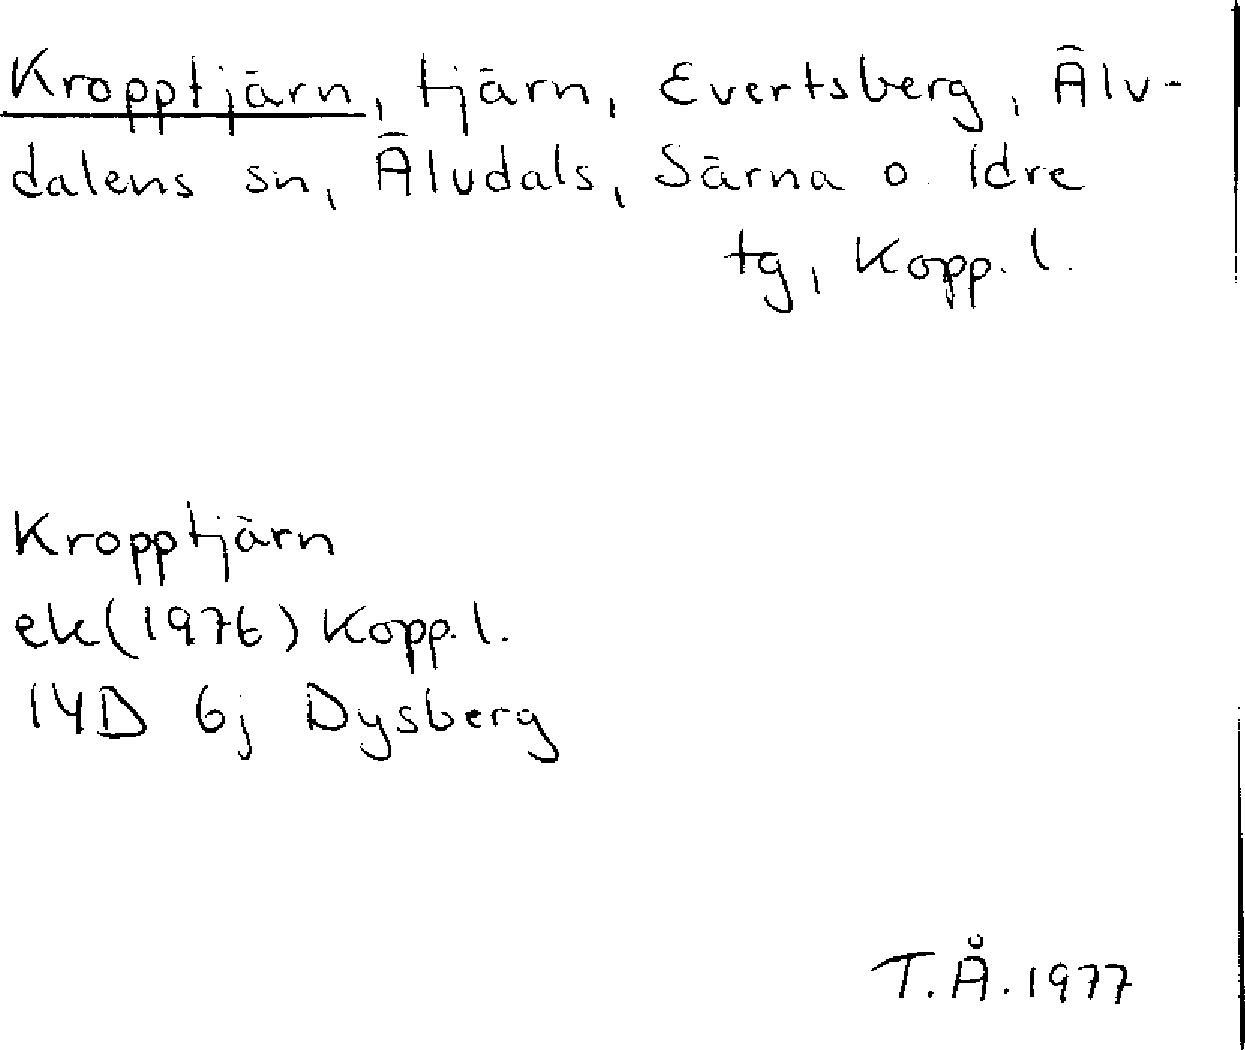 Kropptjärn, tjärn, Evertsberg, Älv-
dalens sn, Älvdals, Särna o. Idre
tg, Kopp. l.
Kropptjärn
ek(1976) Kopp. l.
14D 6j Dysberg
T.Å. 1977